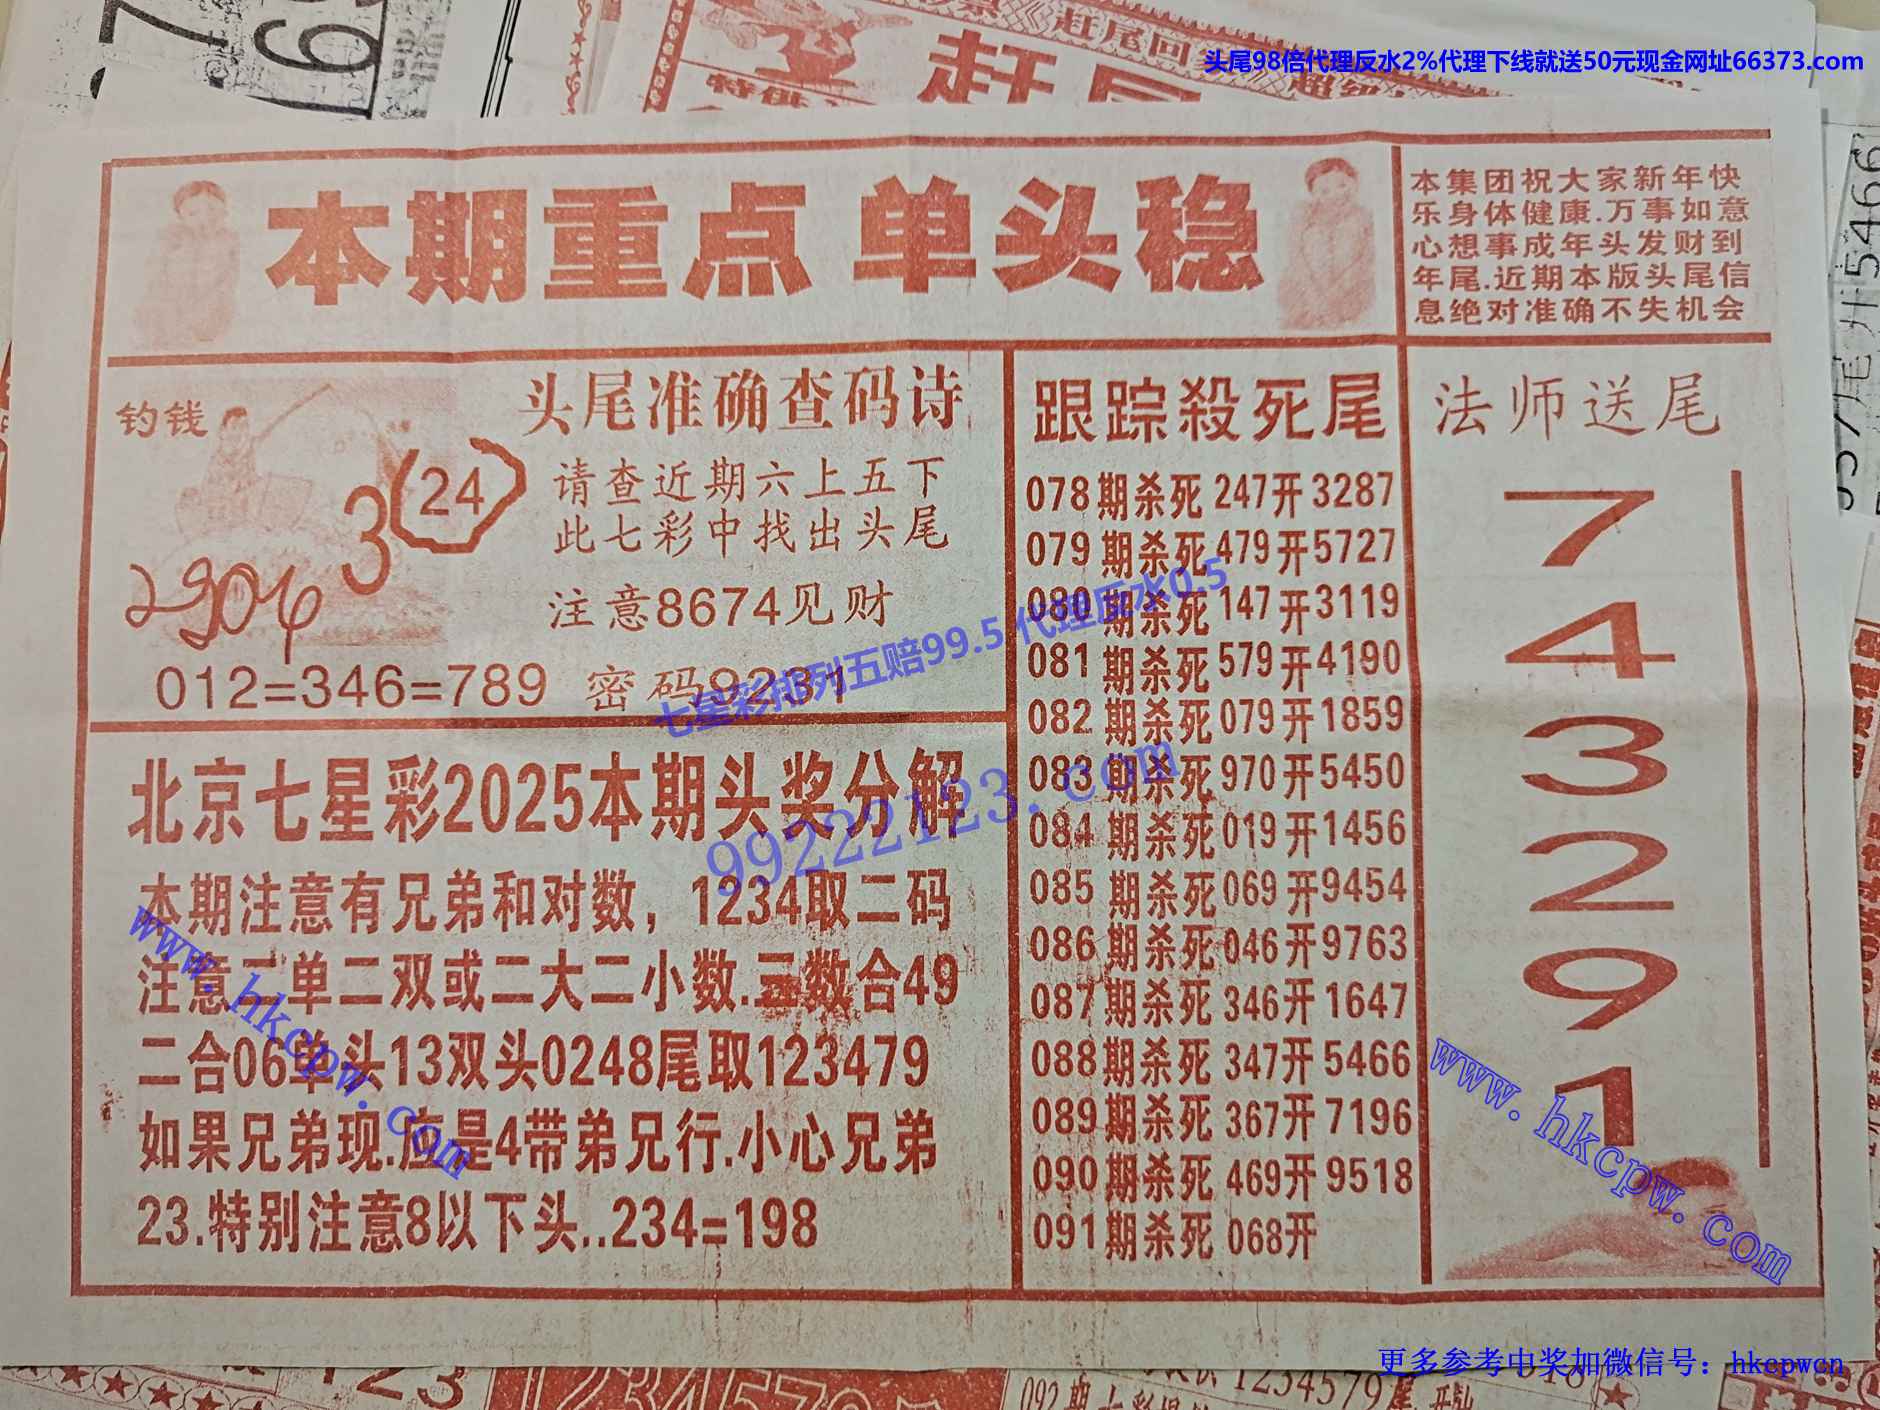 头尾98倍代理反水2%代理下线就送50元现金网址66373.com
赶尾回
赶尾
5466
本期重点 单头稳
本集团祝大家新年快
乐身体健康.万事如意
心想事成年头发财到
年尾.近期本版头尾信
息绝对准确不失机会
钓钱
3(24)
2904
012=346=789 密码9231
头尾准确查码诗
请查近期六上五下
此七彩中找出头尾
注意8674见财
七星彩排列五赔99.5 代理反水0.5
99222123.com
北京七星彩2025本期头奖分解
本期注意有兄弟和对数，1234取二码
注意二单二双或二大二小数.三数合49
二合06单头13双头0248尾取123479
如果兄弟现.应是4带弟兄行.小心兄弟
23.特别注意8以下头..234=198
www.hkcpw.com
跟踪殺死尾
078期杀死247开3287
079期杀死479开5727
080期杀死147开3119
081期杀死579开4190
082期杀死079开1859
083期杀死970开5450
084期杀死019开1456
085期杀死069开9454
086期杀死046开9763
087期杀死346开1647
088期杀死347开5466
089期杀死367开7196
090期杀死469开9518
091期杀死068开
法师送尾
7
4
3
2
9
1
www.hkcpw.com
更多参考中奖加微信号：hkcpwcn